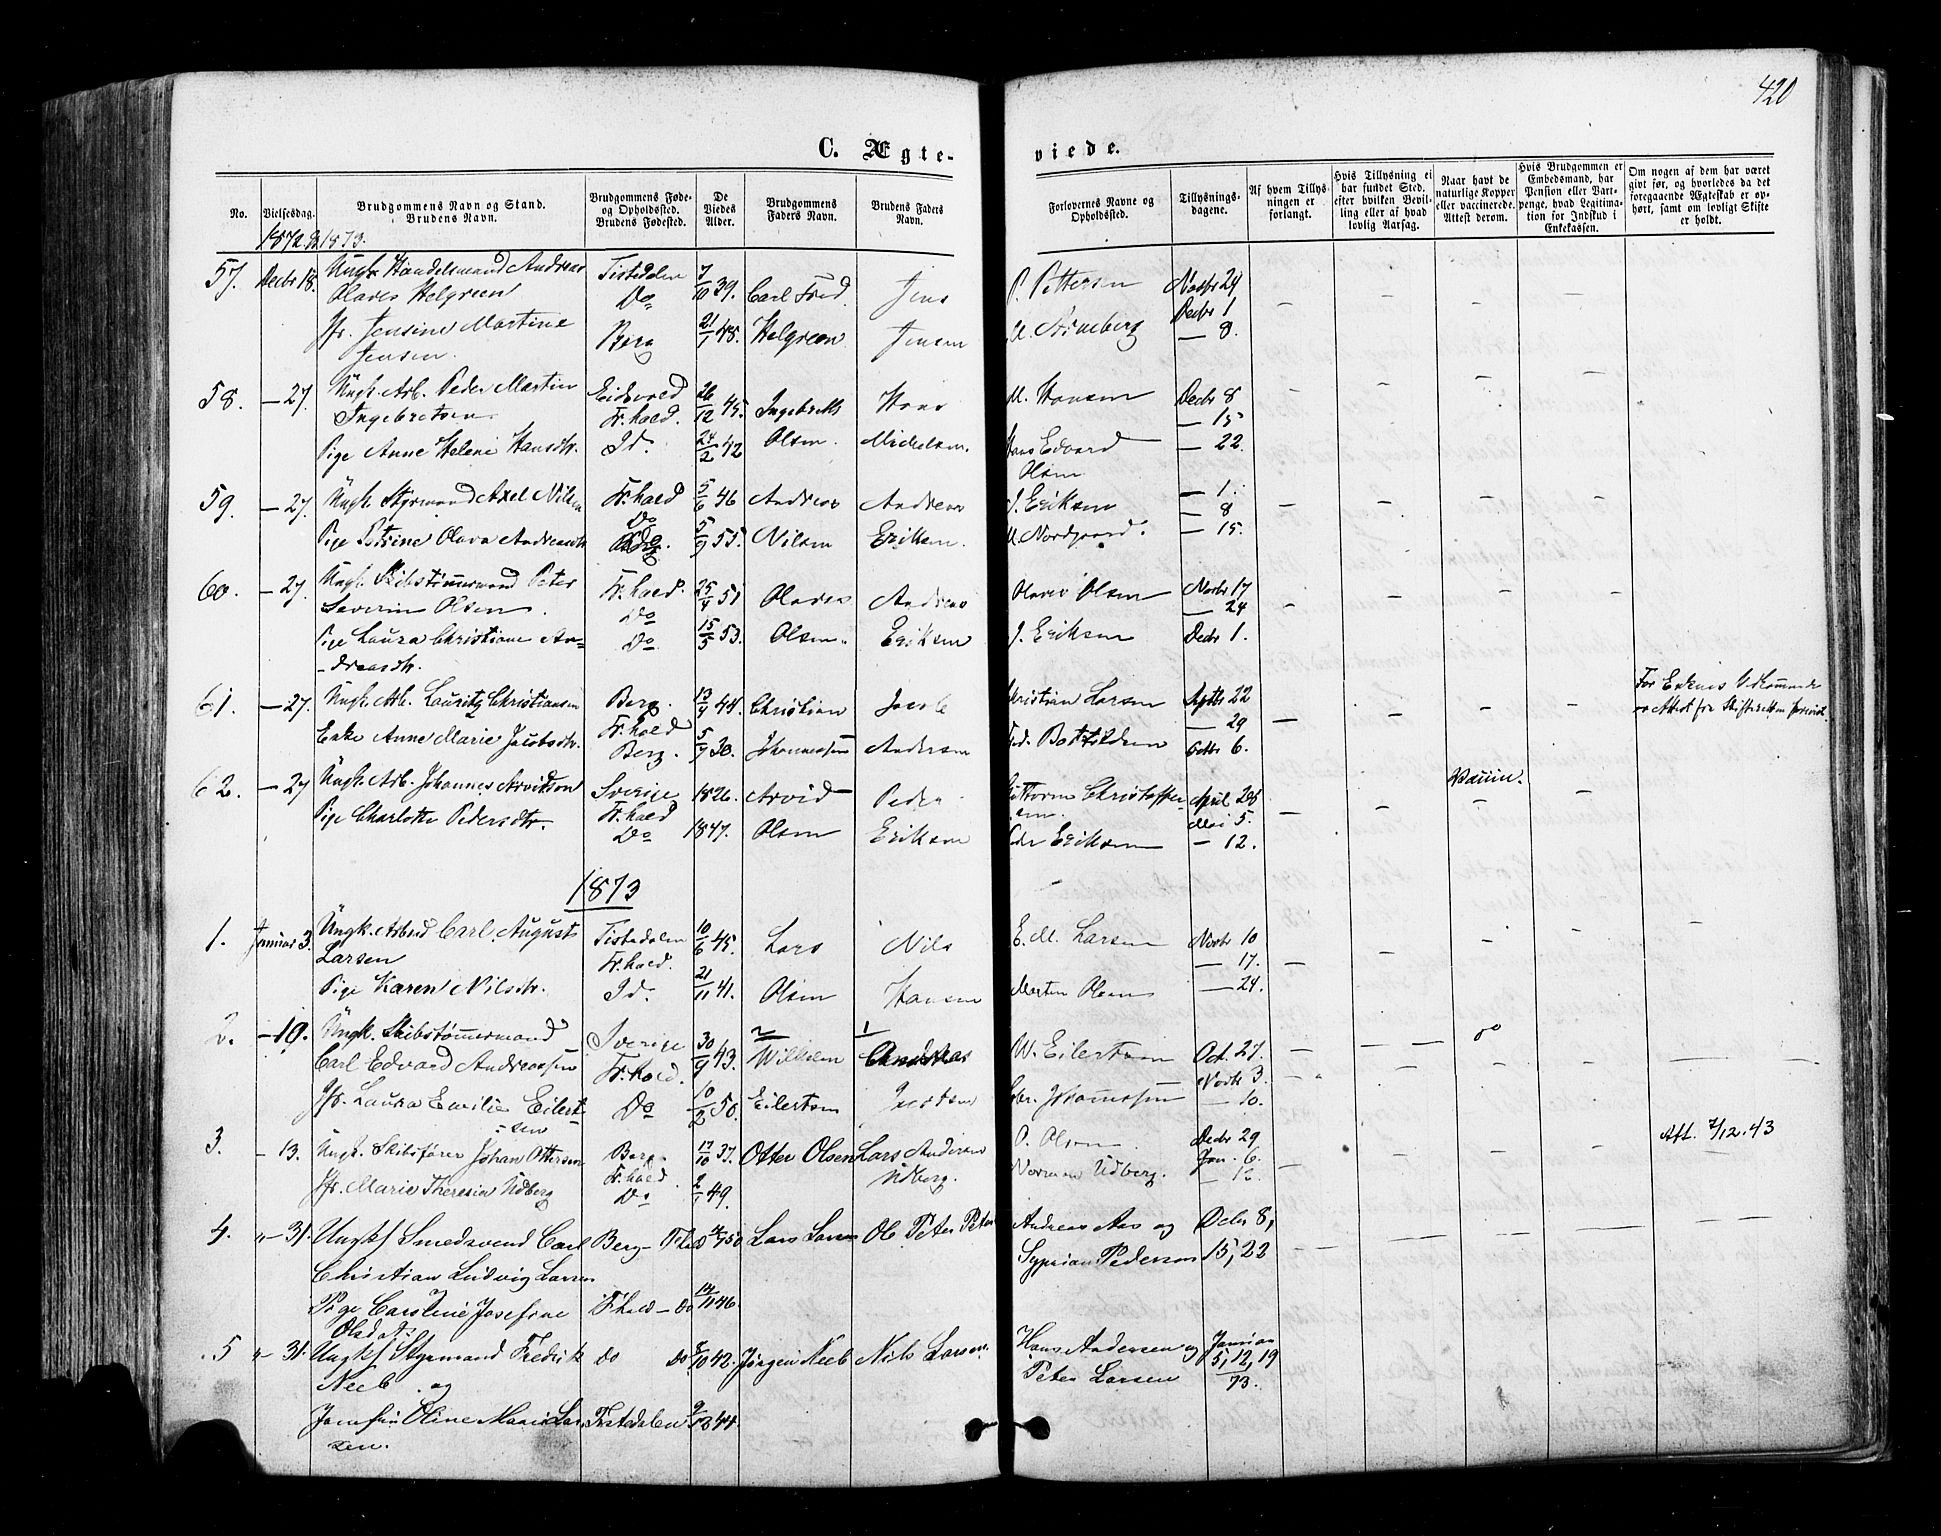 420
C. Ægte-
viede.
No.
Vielsesdag.
Brudgommens Navn og Stand.
Brudens Navn.
Brudgommens Føde-
og Opholdssted.
Brudens Fødested.
De
Viedes
Alder.
Brudgommens
Faders Navn.
Brudens Faders
Navn.
Forlovernes Navne og
Opholdssted.
Tillysnings-
dagene.
Af hvem Tillys-
ningen er
forlangt.
Hvis Tillysning ei
har fundet Sted,
efter hvilken Bevil-
ling eller af hvad
lovlig Aarsag.
Naar havt de
naturlige Kopper
eller vaccinerede.
Attest derom.
Hvis Brudgommen er
Embedsmand, har
Pension eller Vart-
penge, hvad Legitima-
tion for Indskud i
Enkekassen.
Om nogen af dem har været
givt før, og hvorledes da det
foregaaende Ægteskab er op-
hørt, samt om lovligt Skifte
er holdt.
1872 & 1873.
57. Decbr 18. Ungk. Handelsmand Andreas Tistedalen 7/10 39. Carl Fred. Jens P. Pettersen Novbr 24
Olaves Helgreen Do Decbr 1
Jfr. Jensine Martine Berg 21/1 48. Helgreen Jensen — 8.
Jensen.
58. — 27. Ungk. Arb. Peder Martin Eidsvold 26/12 45. Ingebreth Hans M. Hansen Decbr 8
Ingebretsen Fr.hald. — 15
Pige Anne Helene Hansdtr. Id. 24/2 42 Olsen. Michelsen. Hans Edvard — 22.
Olsen
59. — 27. Ungk. Styrmand Axel Nilsen Fr.hald 5/6 46 Andreas Andreas J. Eriksen — 1.
Do — 8
Pige Petrine Olava Andreasdtr 5/9 55. Nilsen Eriksen. M. Nordgaard. — 15.
60. — 27. Ungk. Skibstømmermand Peter Fr.hald. 25/4 51 Olaves Andreas Olaves Olsen Novbr 17
Severin Olsen. Do — 24
Pige Laura Christiane An- Do 15/5 53. Olsen. Eriksen J. Eriksen Decbr 1.
-dreasdtr.
61. — 27. Ungk. Arb. Lauritz Christiansen Berg. 13/4 44. Christian Jacob Christian Larsen Septbr 22
Fr.hald — 29
Enke Anne Marie Jacobsdtr. Berg. 5/9 30. Johannessen Andersen Fred. Bottildsen Octbr 6.
For Enkens Vedkommende
er Attest fra Skifteretten forevist.
62. — 27 Ungk. Arb. Johannes Arvidson Sverige 1826. Arvid Peder Guttorm Christoffer- April 28 Vaccin.
Fr.hald sen. Mai 5.
Pige Charlotte Pedersdtr. Do 1847. Olsen Eriksen Peder Eriksen — 12.
1873
1. Januar 3. Ungk. Arbeid Carl August Tistedalen 10/6 45. Lars Nils E. M. Larsen Novbr 10
Larsen Fr.hald. — 17.
Pige Karen Nilsdtr. Id. 21/11 41. Olsen Hansen Morten Olsen — 24.
2. — 10. Ungk. Skibstømmermand Sverige 30/9 43. 2 Wilhelm 1 Andreas W. Eilertsen Oct. 27.
Carl Edvard Andreassen Fr.hald. Novbr 3.
Jfr. Laura Emilie Eilert- Do 10/2 50. Eilertsen Johannessen — 10.
-sen
3. — 13. Ungk. Skibsfører Johan Ottersen Berg. 17/10 37. Otter Olsen Lars Andersen P. Olsen Decbr 29
Fr.hald Udberg. Jan. 6.
Jfr. Marie Theresia Udberg Do 2/1 49. Norman Udberg. — 12
Att. 7/12. 43
4. " 31. Ungkf Smedsvend Carl Berg — Fr.hald 50 Lars Larsen Ole Peter Peter Andreas Aas og Decbr 8,
Christian Ludvig Larsen Syprian Pederson 15, 22
Pige Caroline Josefine Frhald — Do 14/11 46.
Olsdatr
5 " 31. Ungkf Styrmand Fredrik Do Do 8/10 42. Jørgen Neeb Niels Larsen. Hans Andersen og Januar
Neeb og 5, 12, 19
Jomfru Oline Marie Lar- Tistedalen 9/12 44. Peter Larsen 73.
sen.